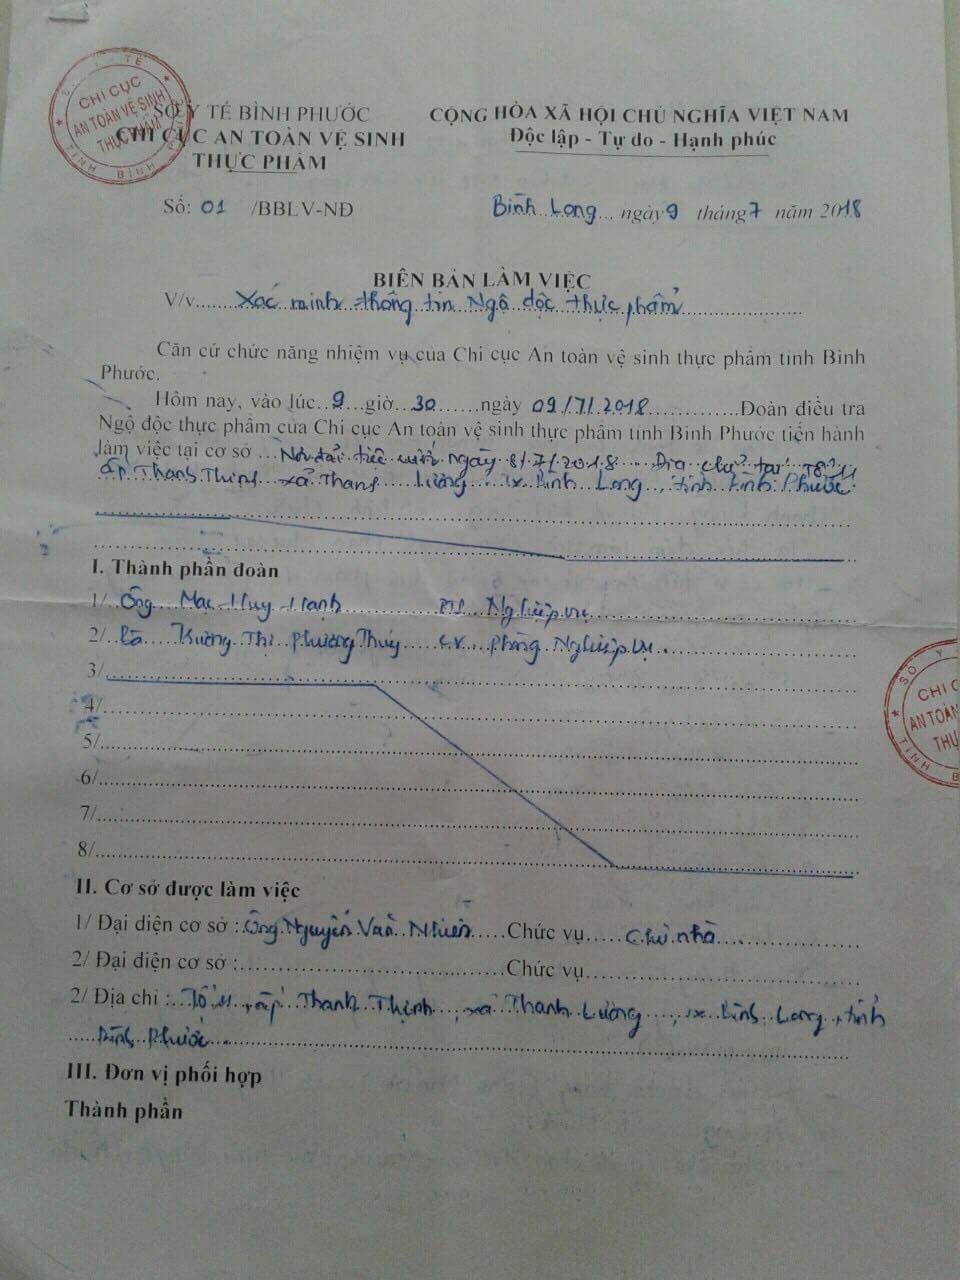 SỞ Y TẾ BÌNH PHƯỚC
CHI CỤC AN TOÀN VỆ SINH
THỰC PHẨM
CỘNG HÒA XÃ HỘI CHỦ NGHĨA VIỆT NAM
Độc lập - Tự do - Hạnh phúc
CHI CỤC
AN TOÀN VỆ SINH
THỰC PHẨM
TỈNH BÌNH
Số: 01 /BBLV-NĐ
Bình Long, ngày 9 tháng 7 năm 2018
BIÊN BẢN LÀM VIỆC
V/v Xác minh thông tin Ngộ độc thực phẩm
Căn cứ chức năng nhiệm vụ của Chi cục An toàn vệ sinh thực phẩm tỉnh Bình
Phước.
Hôm nay, vào lúc 9 giờ 30 ngày 09/7/2018 Đoàn điều tra
Ngộ độc thực phẩm của Chi cục An toàn vệ sinh thực phẩm tỉnh Bình Phước tiến hành
làm việc tại cơ sở Nơi đãi tiệc cưới ngày 8/7/2018 Địa chỉ tại Tổ 11
ấp Thanh Thịnh xã Thanh Lương tx Bình Long, tỉnh Bình Phước
I. Thành phần đoàn
1/ Ông Mạc Huy Nghiệp vụ
2/ Bà Thị Phương Thúy CV Phòng Nghiệp vụ
3/
4/
5/
6/
7/
8/
SỞ Y
CHI C
AN TOÀN
THỰ
TỈNH B
II. Cơ sở được làm việc
1/ Đại diện cơ sở : Ông Nguyễn Văn Nhiên Chức vụ Chủ nhà
2/ Đại diện cơ sở : Chức vụ
2/ Địa chỉ : Tổ 11, ấp Thanh Thịnh, xã Thanh Lương, tx Bình Long, tỉnh
Bình Phước
III. Đơn vị phối hợp
Thành phần